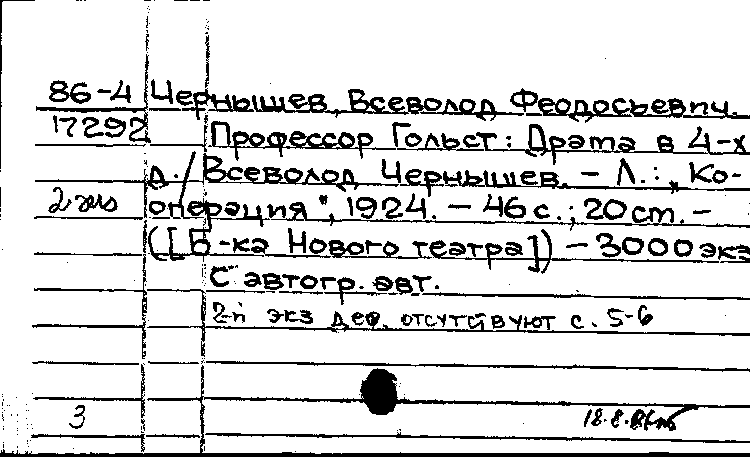 86-4 Чернышев, Всеволод Феодосьевич.
17292 Профессор Гольст: Драма в 4-х
д./ Всеволод Чернышев. – Л.: „Ко-
2 экз операция", 1924. – 46 с.; 20 ст. –
([Б-ка Нового театра]) – 3000 экз
С автогр. авт.
2-й экз деф. отсутствуют с. 5-6
3